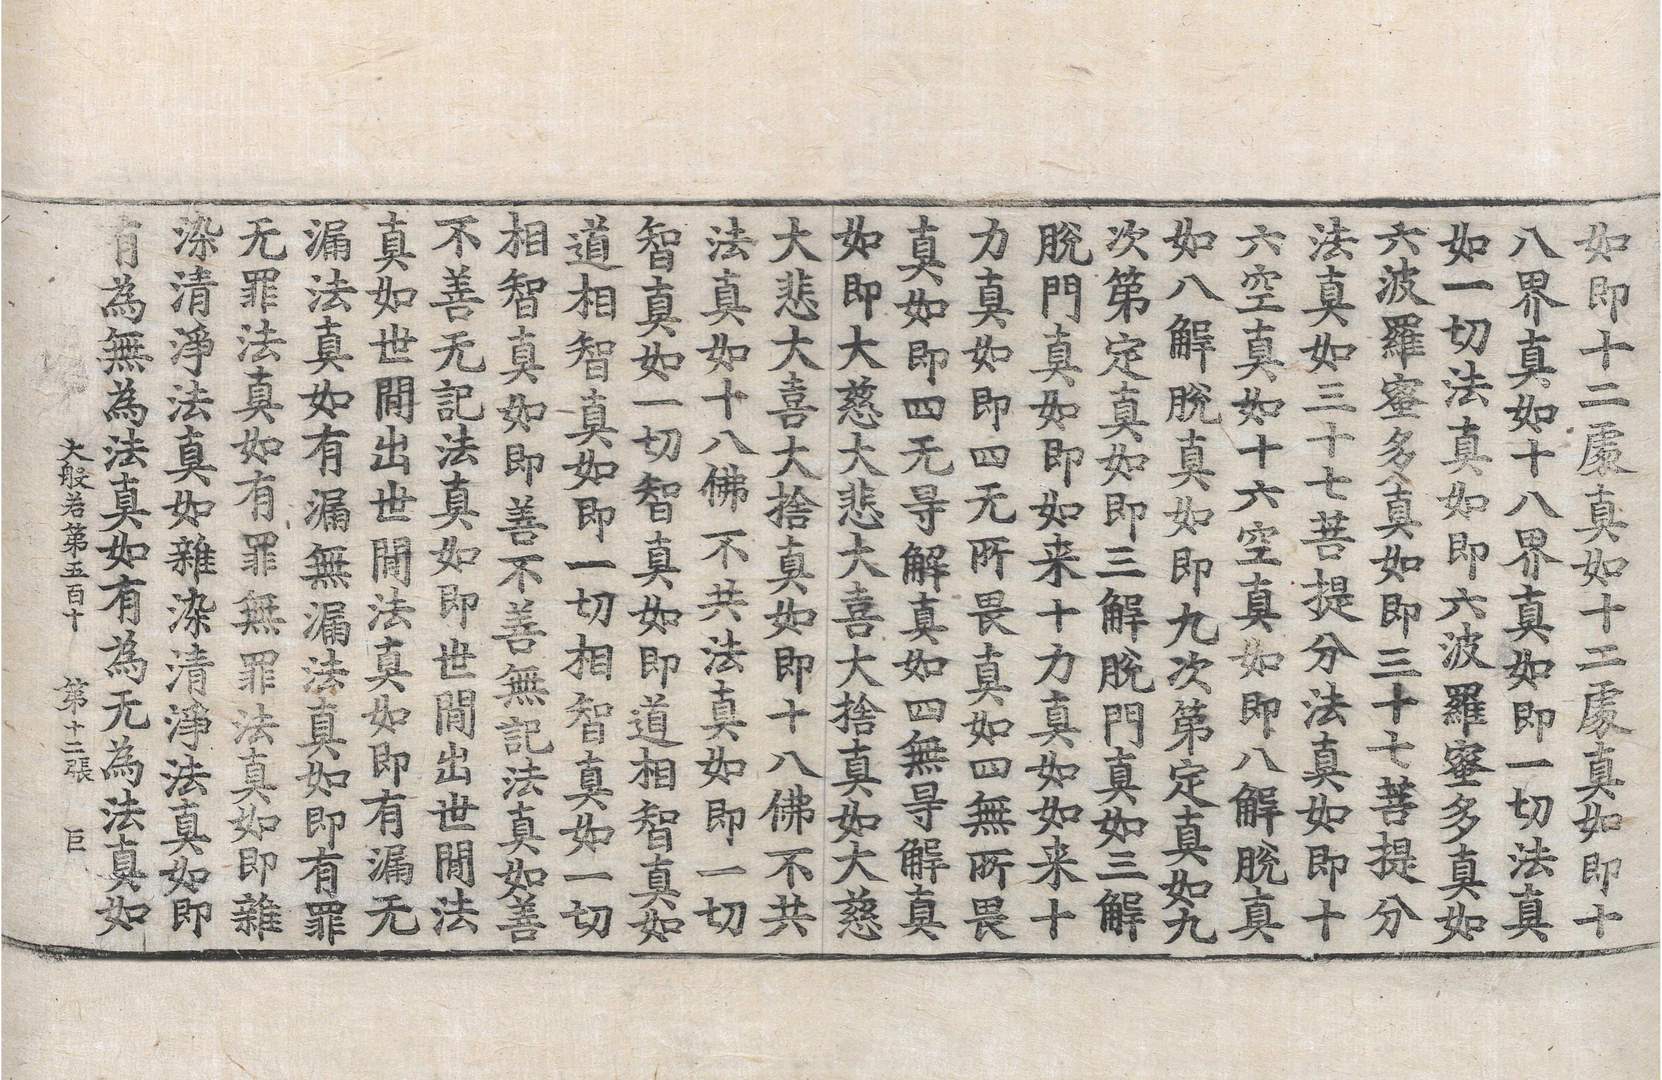 如即十二處真如十二處真如即十
八界真如十八界真如即一切法真
如一切法真如即六波羅蜜多真如
六波羅蜜多真如即三十七菩提分
法真如三十七菩提分法真如即十
六空真如十六空真如即八解脫真
如八解脫真如即九次第定真如九
次第定真如即三解脫門真如三解
脫門真如即如来十力真如如来十
力真如即四无所畏真如四無所畏
真如即四无㝵解真如四無㝵解真
如即大慈大悲大喜大捨真如大慈
大悲大喜大捨真如即十八佛不共
法真如十八佛不共法真如即一切
智真如一切智真如即道相智真如
道相智真如即一切相智真如一切
相智真如即善不善無記法真如善
不善无記法真如即世間出世間法
真如世間出世間法真如即有漏无
漏法真如有漏無漏法真如即有罪
无罪法真如有罪無罪法真如即雜
染清淨法真如雜染清淨法真如即
有為無為法真如有為无為法真如
大般若第五百十 第十二張 巨